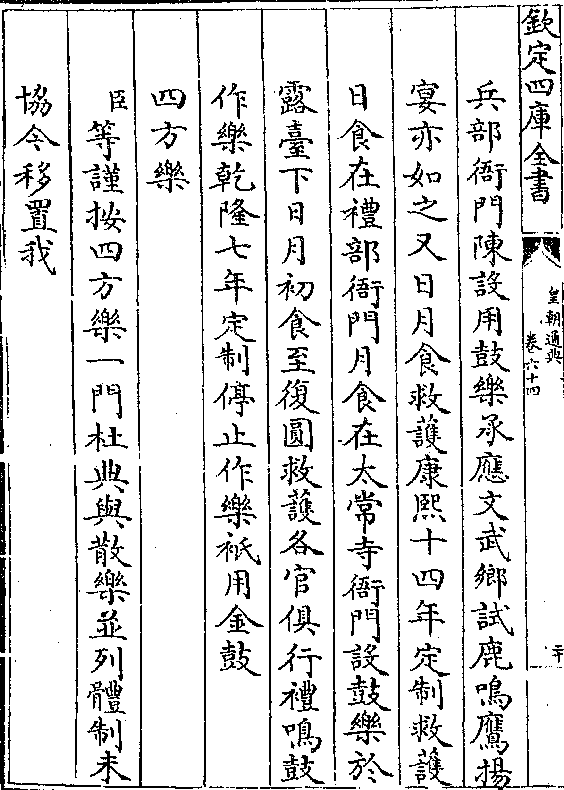 欽定四庫全書
皇朝通典
卷六十四
二十
兵部衙門陳設用鼓樂承應文武鄉試鹿鳴鷹揚
宴亦如之又日月食救護康熙十四年定制救護
日食在禮部衙門月食在太常寺衙門設鼓樂於
露臺下日月初食至復圓救護各官俱行禮鳴鼓
作樂乾隆七年定制停止作樂祇用金鼓
四方樂
臣等謹按四方樂一門杜典與散樂並列體制未
協今移置我